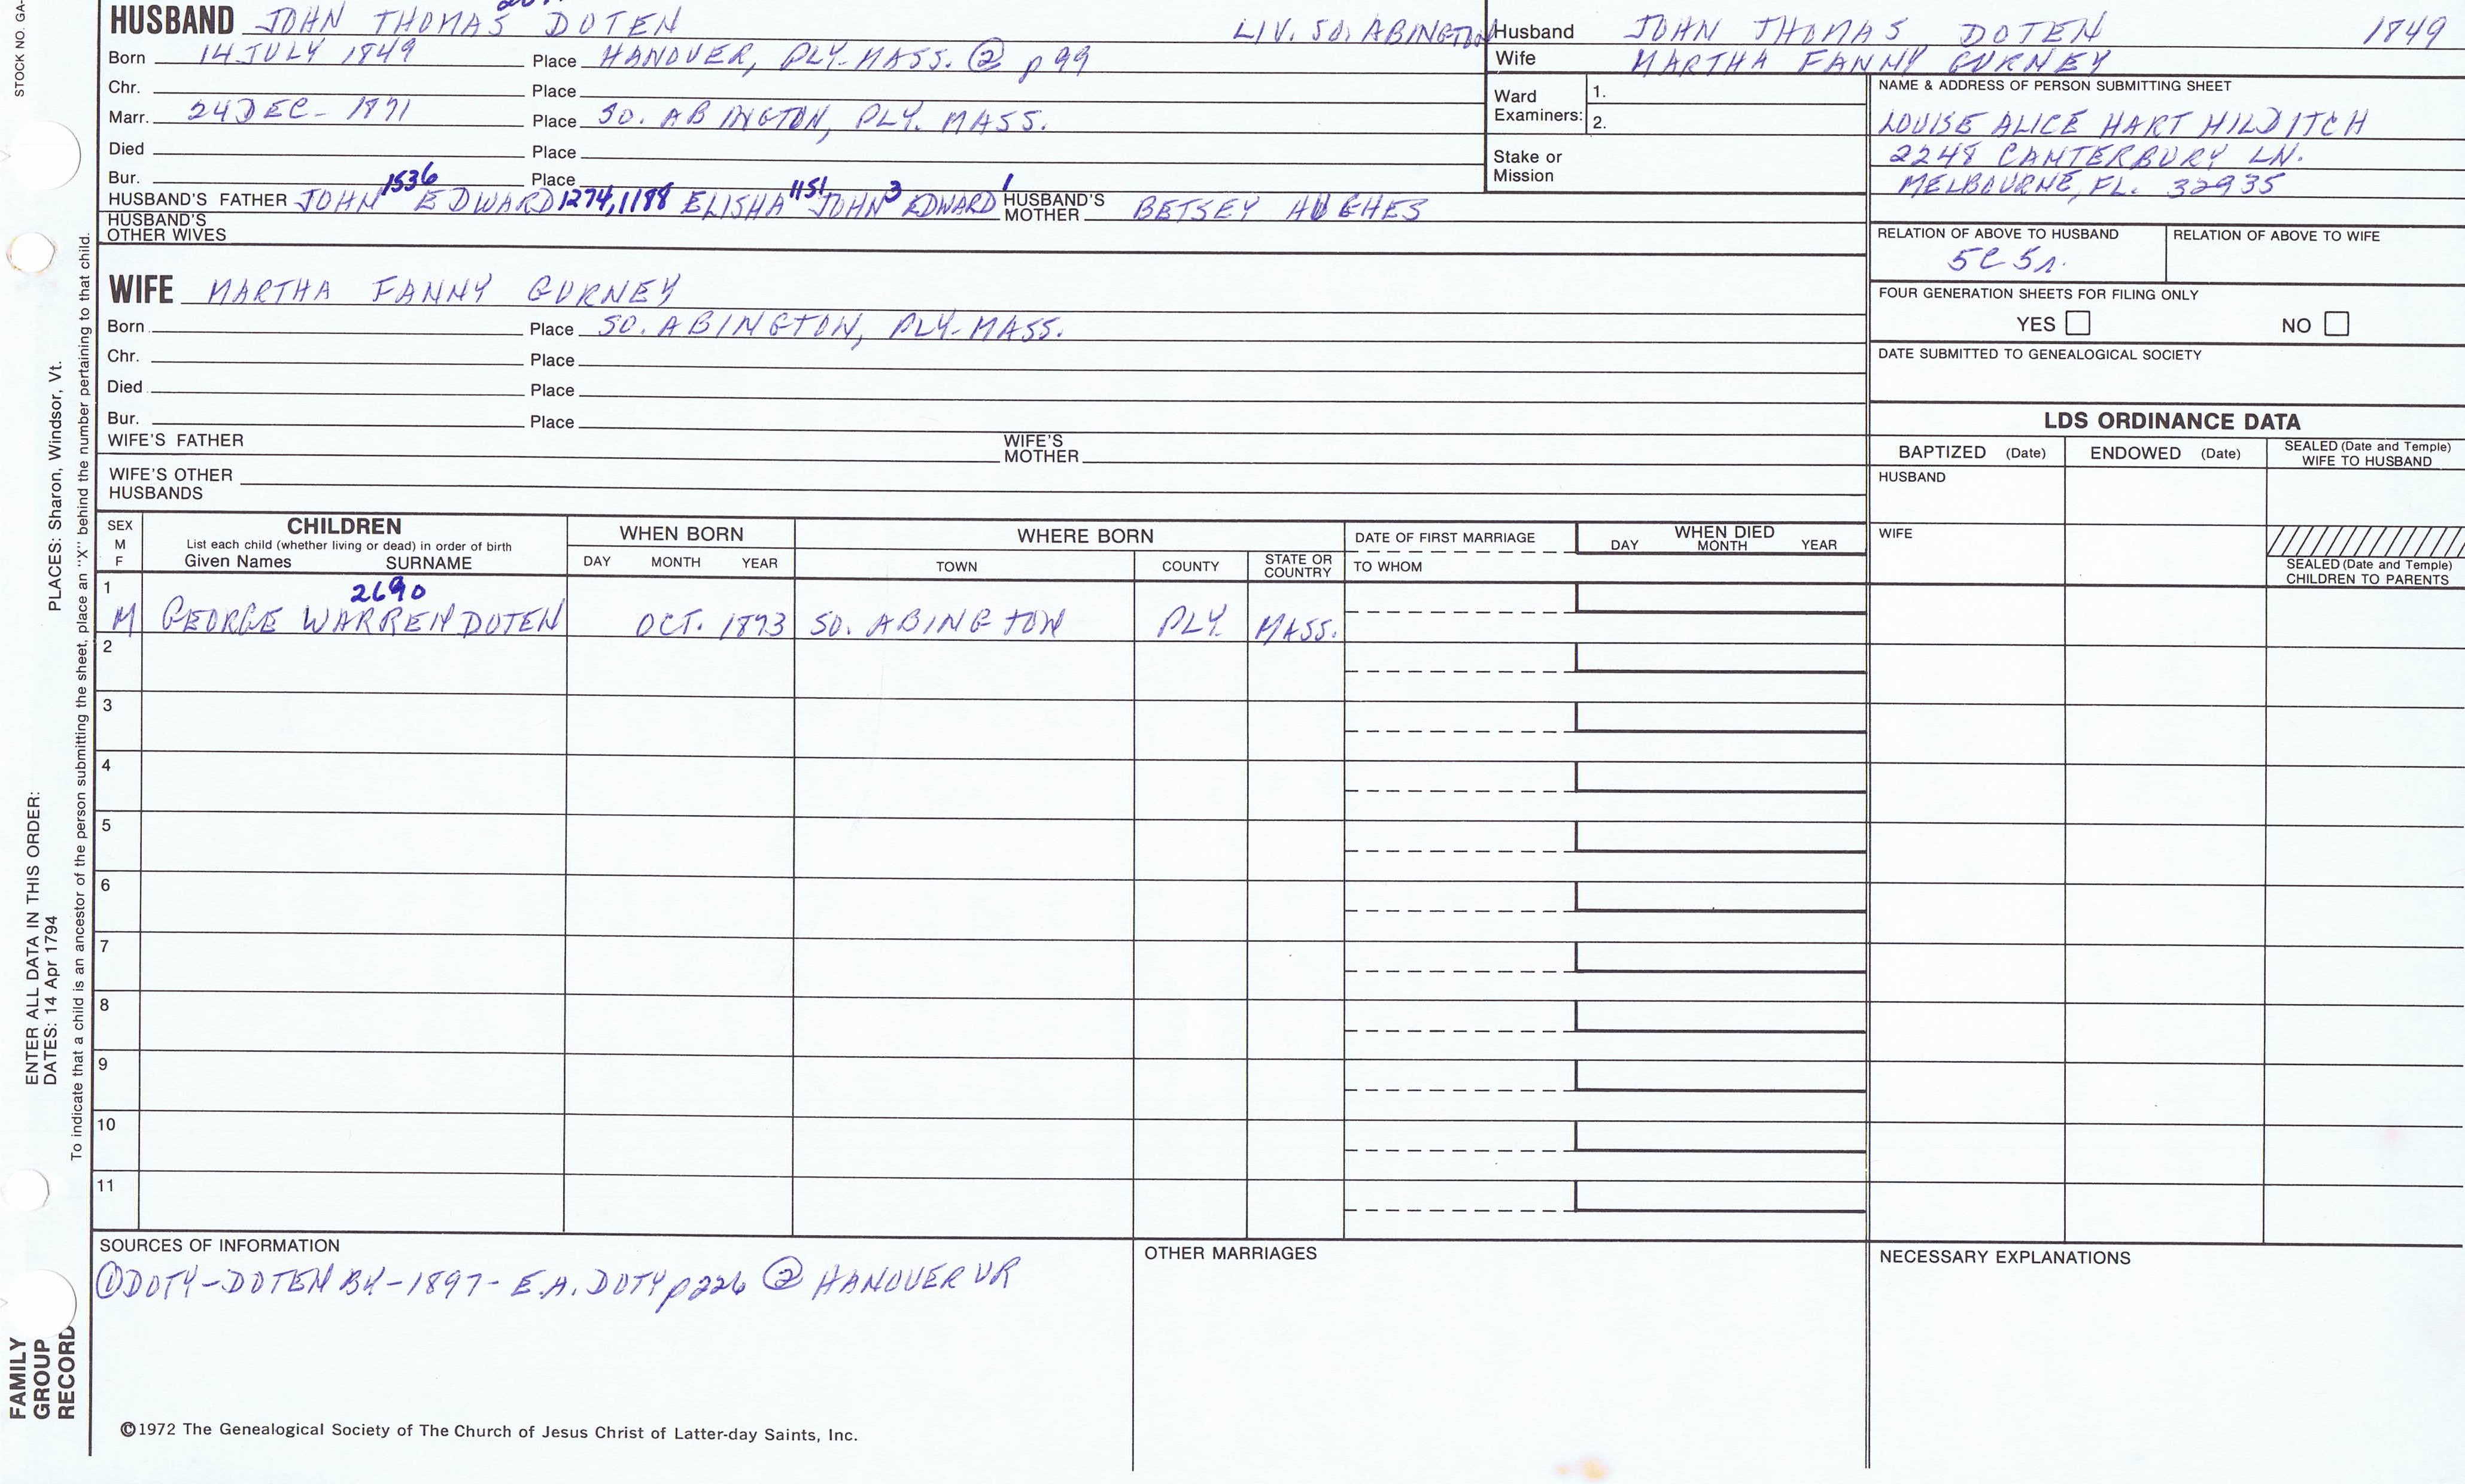 STOCK NO. GA-
HUSBAND JOHN THOMAS DOTEN LIV. SO. ABINGTON
Born 14 JULY 1849 Place HANOVER, PLY-MASS. ② p 99
Chr. Place
Marr. 24 DEC - 1871 Place SO. ABINGTON, PLY. MASS.
Died Place
Bur. Place
1536 1274,1188 1151 3 1
HUSBAND'S FATHER JOHN EDWARD ELISHA JOHN EDWARD HUSBAND'S MOTHER BETSEY HUGHES
HUSBAND'S OTHER WIVES
Husband JOHN THOMAS DOTEN 1849
Wife MARTHA FANNY GURNEY
Ward Examiners: 1.
2.
Stake or Mission
NAME & ADDRESS OF PERSON SUBMITTING SHEET
LOUISE ALICE HART HILDITCH
2248 CANTERBURY LN.
MELBOURNE, FL. 32935
RELATION OF ABOVE TO HUSBAND RELATION OF ABOVE TO WIFE
5C 5r.
FOUR GENERATION SHEETS FOR FILING ONLY
YES NO
DATE SUBMITTED TO GENEALOGICAL SOCIETY
WIFE MARTHA FANNY GURNEY
Born Place SO. ABINGTON, PLY-MASS.
Chr. Place
Died Place
Bur. Place
WIFE'S FATHER WIFE'S MOTHER
WIFE'S OTHER HUSBANDS
LDS ORDINANCE DATA
BAPTIZED (Date) ENDOWED (Date) SEALED (Date and Temple) WIFE TO HUSBAND
HUSBAND
WIFE
SEALED (Date and Temple) CHILDREN TO PARENTS
SEX M F CHILDREN WHEN BORN WHERE BORN DATE OF FIRST MARRIAGE WHEN DIED
List each child (whether living or dead) in order of birth
Given Names SURNAME DAY MONTH YEAR TOWN COUNTY STATE OR COUNTRY TO WHOM DAY MONTH YEAR
1 2690
M GEORGE WARREN DOTEN OCT. 1873 SO. ABINGTON PLY. MASS.
2
3
4
5
6
7
8
9
10
11
SOURCES OF INFORMATION
① DOTY-DOTEN BK-1897- E.A. DOTY p226 ② HANOVER VR
OTHER MARRIAGES
NECESSARY EXPLANATIONS
©1972 The Genealogical Society of The Church of Jesus Christ of Latter-day Saints, Inc.
FAMILY GROUP RECORD
ENTER ALL DATA IN THIS ORDER:
DATES: 14 Apr 1794
PLACES: Sharon, Windsor, Vt.
To indicate that a child is an ancestor of the person submitting the sheet, place an "X" behind the number pertaining to that child.